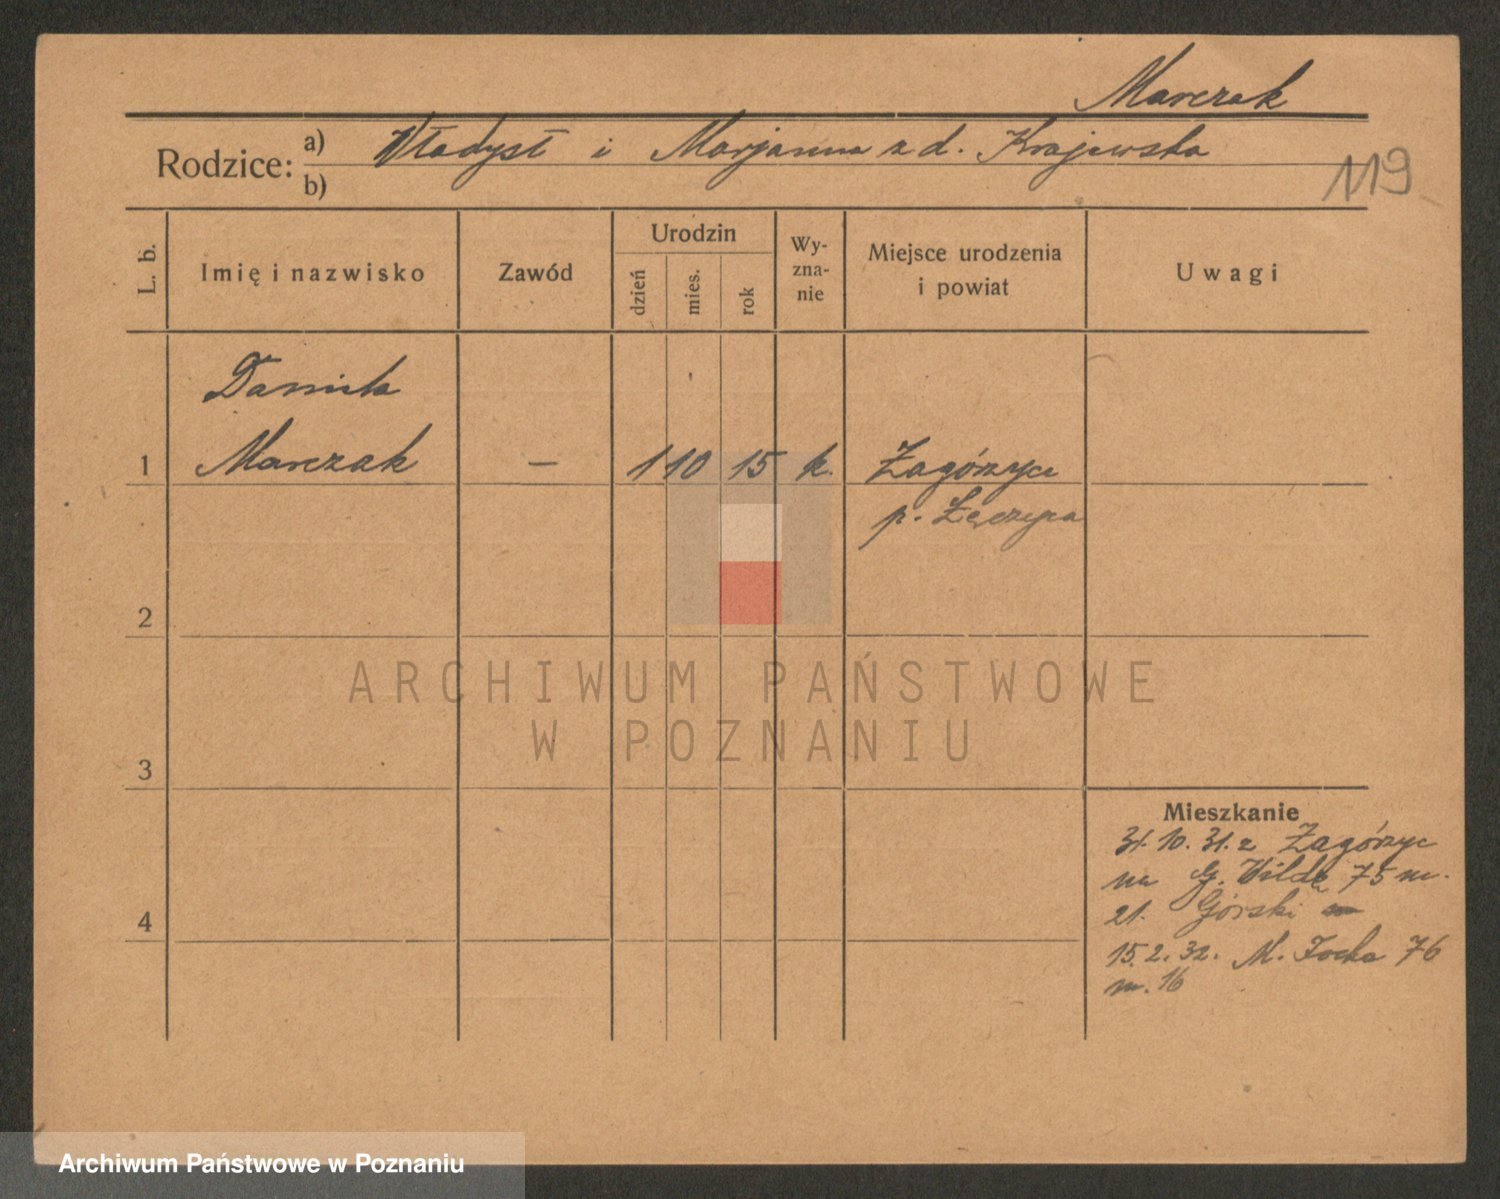 Marczak
Rodzice: a) Władysł i Marjanna z d. Krajewska
b)
119
L. b.
Imię i nazwisko
Zawód
Urodzin
dzień
mies.
rok
Wy-
zna-
nie
Miejsce urodzenia
i powiat
Uwagi
Danuta
1 Marczak — 1 10 15 k. Zagórzyce
p. Łęczyca
2
3
4
Mieszkanie
31.10.31. z Zagórzyc
na G. Wildę 75 m.
21. Górski
15.2.32. M. Focha 76
m. 16
ARCHIWUM PAŃSTWOWE
W POZNANIU
Archiwum Państwowe w Poznaniu